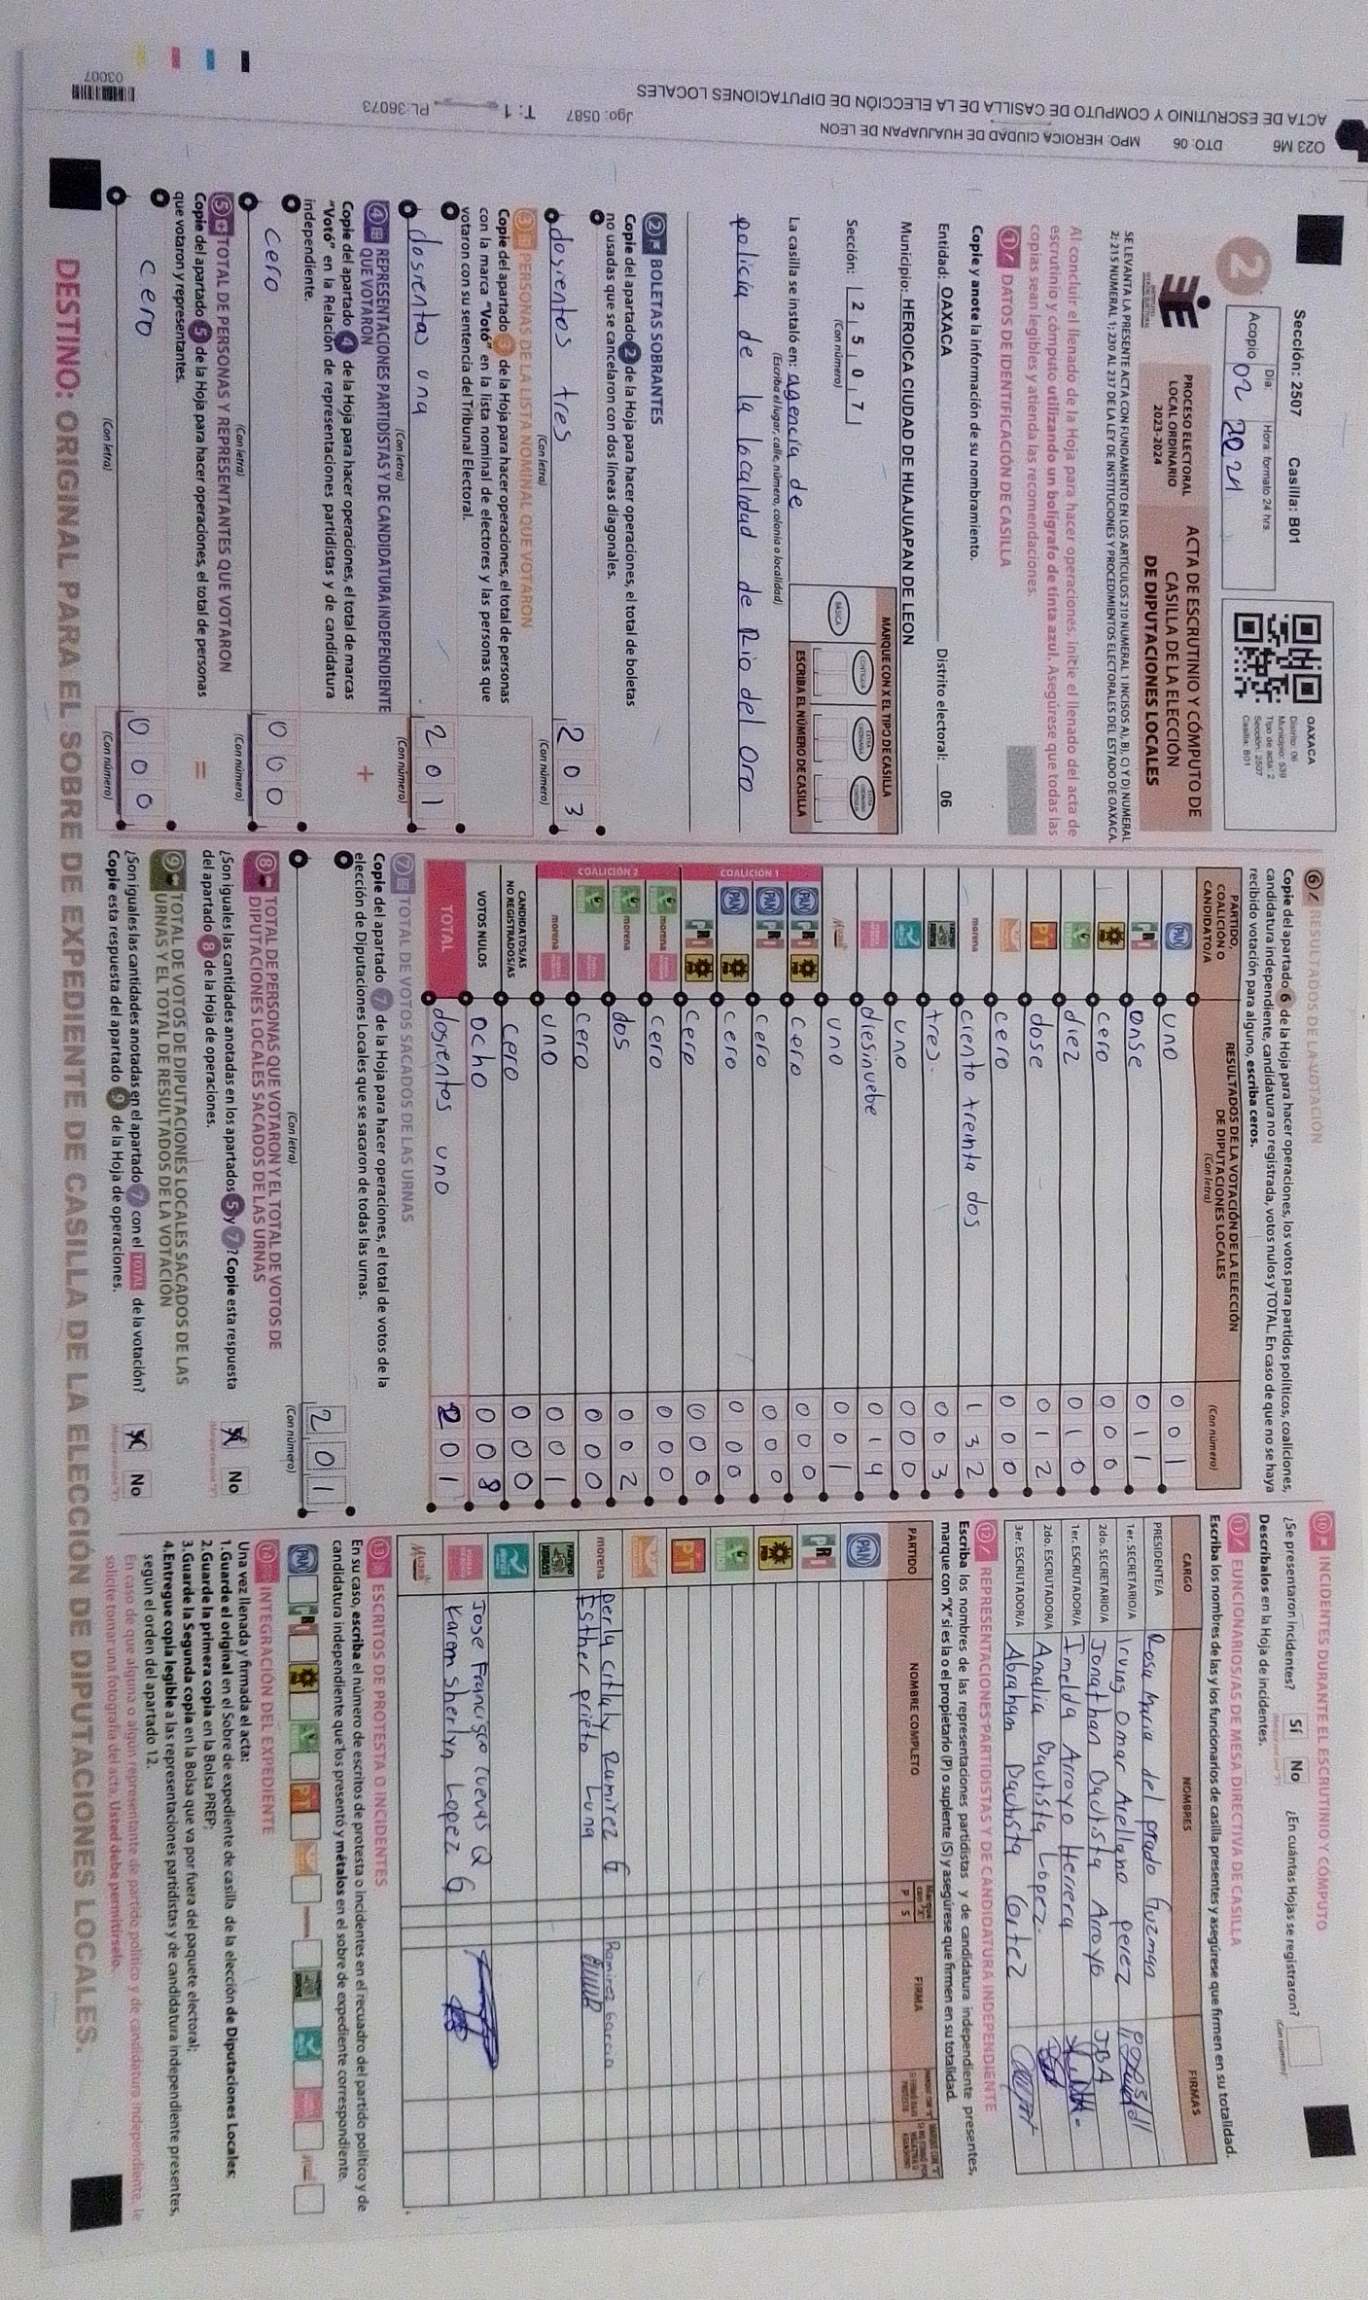 O23 M6 DTO. 06 MPO. HEROICA CIUDAD DE HUAJUAPAN DE LEON
ACTA DE ESCRUTINIO Y COMPUTO DE CASILLA DE LA ELECCIÓN DE DIPUTACIONES LOCALES
Jgo: 0587 T: 1 PL:36073
03007
Sección: 2507 Casilla: B01
2
Acopio
Día:
Hora: formato 24 hrs.
02 20 21
OAXACA
Distrito: 06
Municipio: 539
Tipo de acta: 2
Sección: 2507
Casilla: B01
PROCESO ELECTORAL
LOCAL ORDINARIO
2023-2024
ACTA DE ESCRUTINIO Y CÓMPUTO DE
CASILLA DE LA ELECCIÓN
DE DIPUTACIONES LOCALES
SE LEVANTA LA PRESENTE ACTA CON FUNDAMENTO EN LOS ARTÍCULOS 210 NUMERAL 1 INCISOS A), B), C) Y D) NUMERAL
2; 215 NUMERAL 1; 230 AL 237 DE LA LEY DE INSTITUCIONES Y PROCEDIMIENTOS ELECTORALES DEL ESTADO DE OAXACA.
Al concluir el llenado de la Hoja para hacer operaciones, inicie el llenado del acta de
escrutinio y cómputo utilizando un bolígrafo de tinta azul. Asegúrese que todas las
copias sean legibles y atienda las recomendaciones.
1 DATOS DE IDENTIFICACIÓN DE CASILLA
Copie y anote la información de su nombramiento.
Entidad: OAXACA Distrito electoral: 06
Municipio: HEROICA CIUDAD DE HUAJUAPAN DE LEON
Sección: 2 5 0 7
(Con número)
MARQUE CON X EL TIPO DE CASILLA
BÁSICA
CONTIGUA
ESCRIBA EL NÚMERO DE CASILLA
La casilla se instaló en: agencia de
(Escriba el lugar, calle, número, colonia o localidad)
policia de la localidad de Rio del Oro
2 BOLETAS SOBRANTES
Copie del apartado 2 de la Hoja para hacer operaciones, el total de boletas
no usadas que se cancelaron con dos líneas diagonales.
dosientos tres 2 0 3
(Con letra) (Con número)
3 PERSONAS DE LA LISTA NOMINAL QUE VOTARON
Copie del apartado 3 de la Hoja para hacer operaciones, el total de personas
con la marca "Votó" en la lista nominal de electores y las personas que
votaron con su sentencia del Tribunal Electoral.
dosientas una 2 0 1
(Con letra) (Con número)
4 REPRESENTACIONES PARTIDISTAS Y DE CANDIDATURA INDEPENDIENTE
QUE VOTARON
Copie del apartado 4 de la Hoja para hacer operaciones, el total de marcas
"Votó" en la Relación de representaciones partidistas y de candidatura
independiente.
+
cero 0 0 0
(Con letra) (Con número)
5 TOTAL DE PERSONAS Y REPRESENTANTES QUE VOTARON
Copie del apartado 5 de la Hoja para hacer operaciones, el total de personas
que votaron y representantes.
=
cero 0 0 0
(Con letra) (Con número)
6 RESULTADOS DE LA VOTACIÓN
Copie del apartado 6 de la Hoja para hacer operaciones, los votos para partidos políticos, coaliciones,
candidatura independiente, candidatura no registrada, votos nulos y TOTAL. En caso de que no se haya
recibido votación para alguno, escriba ceros.
PARTIDO,
COALICIÓN O
CANDIDATO/A
RESULTADOS DE LA VOTACIÓN DE LA ELECCIÓN
DE DIPUTACIONES LOCALES
(Con letra) (Con número)
PAN uno 0 0 1
PRI onse 0 1 1
cero 0 0 0
diez 0 1 0
PT dose 0 1 2
cero 0 0 0
morena ciento treinta dos 1 3 2
tres. 0 0 3
uno 0 0 0
diesinuebe 0 1 9
uno 0 0 1
COALICIÓN 1
PAN PRI cero 0 0 0
PAN PRI cero 0 0 0
PAN cero 0 0 0
PRI cero 0 0 0
COALICIÓN 2
morena cero 0 0 0
morena dos 0 0 2
cero 0 0 0
morena uno 0 0 1
CANDIDATOS/AS
NO REGISTRADOS/AS cero 0 0 0
VOTOS NULOS ocho 0 0 8
TOTAL dosientos uno 2 0 1
7 TOTAL DE VOTOS SACADOS DE LAS URNAS
Copie del apartado 7 de la Hoja para hacer operaciones, el total de votos de la
elección de Diputaciones Locales que se sacaron de todas las urnas.
2 0 1
(Con letra) (Con número)
8 TOTAL DE PERSONAS QUE VOTARON Y EL TOTAL DE VOTOS DE
DIPUTACIONES LOCALES SACADOS DE LAS URNAS
¿Son iguales las cantidades anotadas en los apartados 5 y 7? Copie esta respuesta
del apartado 8 de la Hoja de operaciones.
No
9 TOTAL DE VOTOS DE DIPUTACIONES LOCALES SACADOS DE LAS
URNAS Y EL TOTAL DE RESULTADOS DE LA VOTACIÓN
¿Son iguales las cantidades anotadas en el apartado 7 con el TOTAL de la votación?
Copie esta respuesta del apartado 9 de la Hoja de operaciones.
No
10 INCIDENTES DURANTE EL ESCRUTINIO Y CÓMPUTO
¿Se presentaron incidentes? Sí No ¿En cuántas Hojas se registraron?
(Con número)
Descríbalos en la Hoja de incidentes.
11 FUNCIONARIOS/AS DE MESA DIRECTIVA DE CASILLA
Escriba los nombres de las y los funcionarios de casilla presentes y asegúrese que firmen en su totalidad.
CARGO NOMBRES FIRMAS
PRESIDENTE/A Rosa Maria del prado Guzman
1er. SECRETARIO/A Irving Omar Arellano perez
2do. SECRETARIO/A Jonathan Bautista Arroyo JBA
1er. ESCRUTADOR/A Imelda Arroyo Herrera
2do. ESCRUTADOR/A Amalia Bautista Lopez.
3er. ESCRUTADOR/A Abraham Bautista Cortez
12 REPRESENTACIONES PARTIDISTAS Y DE CANDIDATURA INDEPENDIENTE
Escriba los nombres de las representaciones partidistas y de candidatura independiente presentes,
marque con "X" si es la o el propietario (P) o suplente (S) y asegúrese que firmen en su totalidad.
PARTIDO NOMBRE COMPLETO P S FIRMA
PAN
PRI
PT
morena perla citlaly Ramirez G Ramirez Garcia
Esther prieto Luna
Jose Francisco Cuevas Q
Karem Sherlyn Lopez G
13 ESCRITOS DE PROTESTA O INCIDENTES
En su caso, escriba el número de escritos de protesta o incidentes en el recuadro del partido político y de
candidatura independiente que los presentó y métalos en el sobre de expediente correspondiente.
PAN PRI PT
14 INTEGRACIÓN DEL EXPEDIENTE
Una vez llenada y firmada el acta:
1.Guarde el original en el Sobre de expediente de casilla de la elección de Diputaciones Locales;
2.Guarde la primera copia en la Bolsa PREP;
3.Guarde la Segunda copia en la Bolsa que va por fuera del paquete electoral;
4.Entregue copia legible a las representaciones partidistas y de candidatura independiente presentes,
según el orden del apartado 12.
En caso de que alguna o algún representante de partido político y de candidatura independiente, le
solicite tomar una fotografía del acta, Usted debe permitírselo.
DESTINO: ORIGINAL PARA EL SOBRE DE EXPEDIENTE DE CASILLA DE LA ELECCIÓN DE DIPUTACIONES LOCALES.